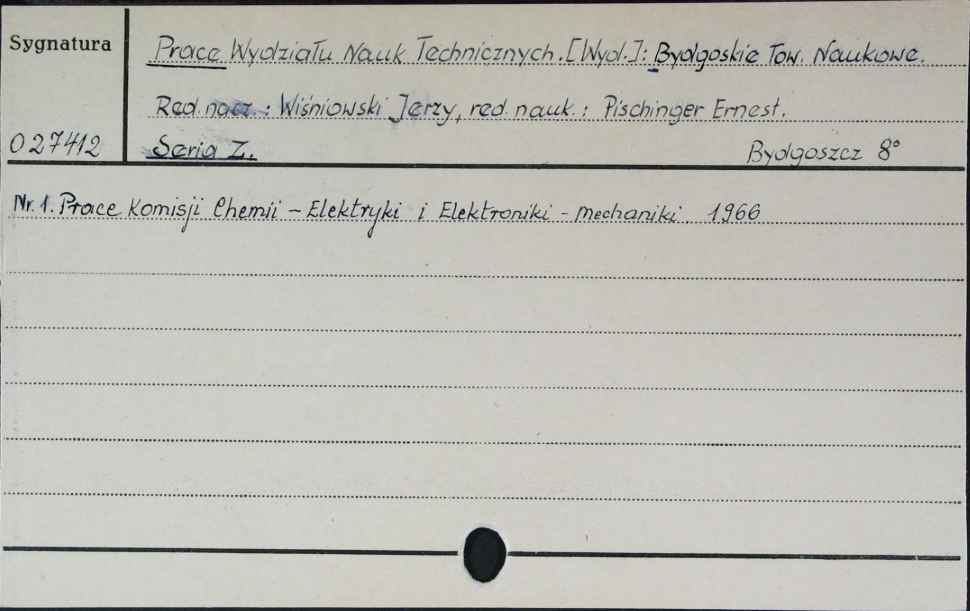 Sygnatura
Prace Wydziału Nauk Technicznych. [Wyd.]: Bydgoskie Tow. Naukowe.
Red. nacz.: Wiśniowski Jerzy, red. nauk.: Pischinger Ernest.
027412
Seria Z.
Bydgoszcz 8°
Nr. 1. Prace Komisji Chemii - Elektryki i Elektroniki - Mechaniki. 1966